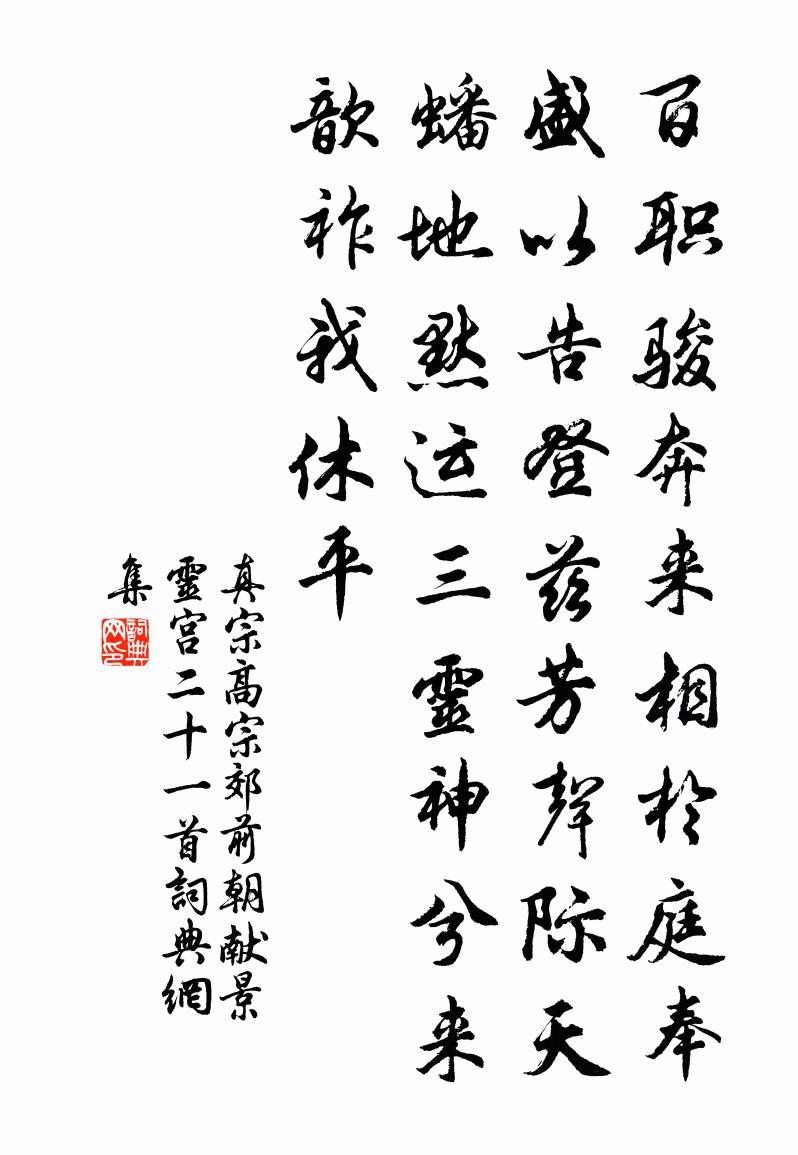 百职骏奔来相於庭奉
盛以告登兹芳声际天
蟠地默运三靈神兮来
歆祚我休平
真宗高宗郊前朝献景
靈宫二十一首詞典網
集
詞典
网印